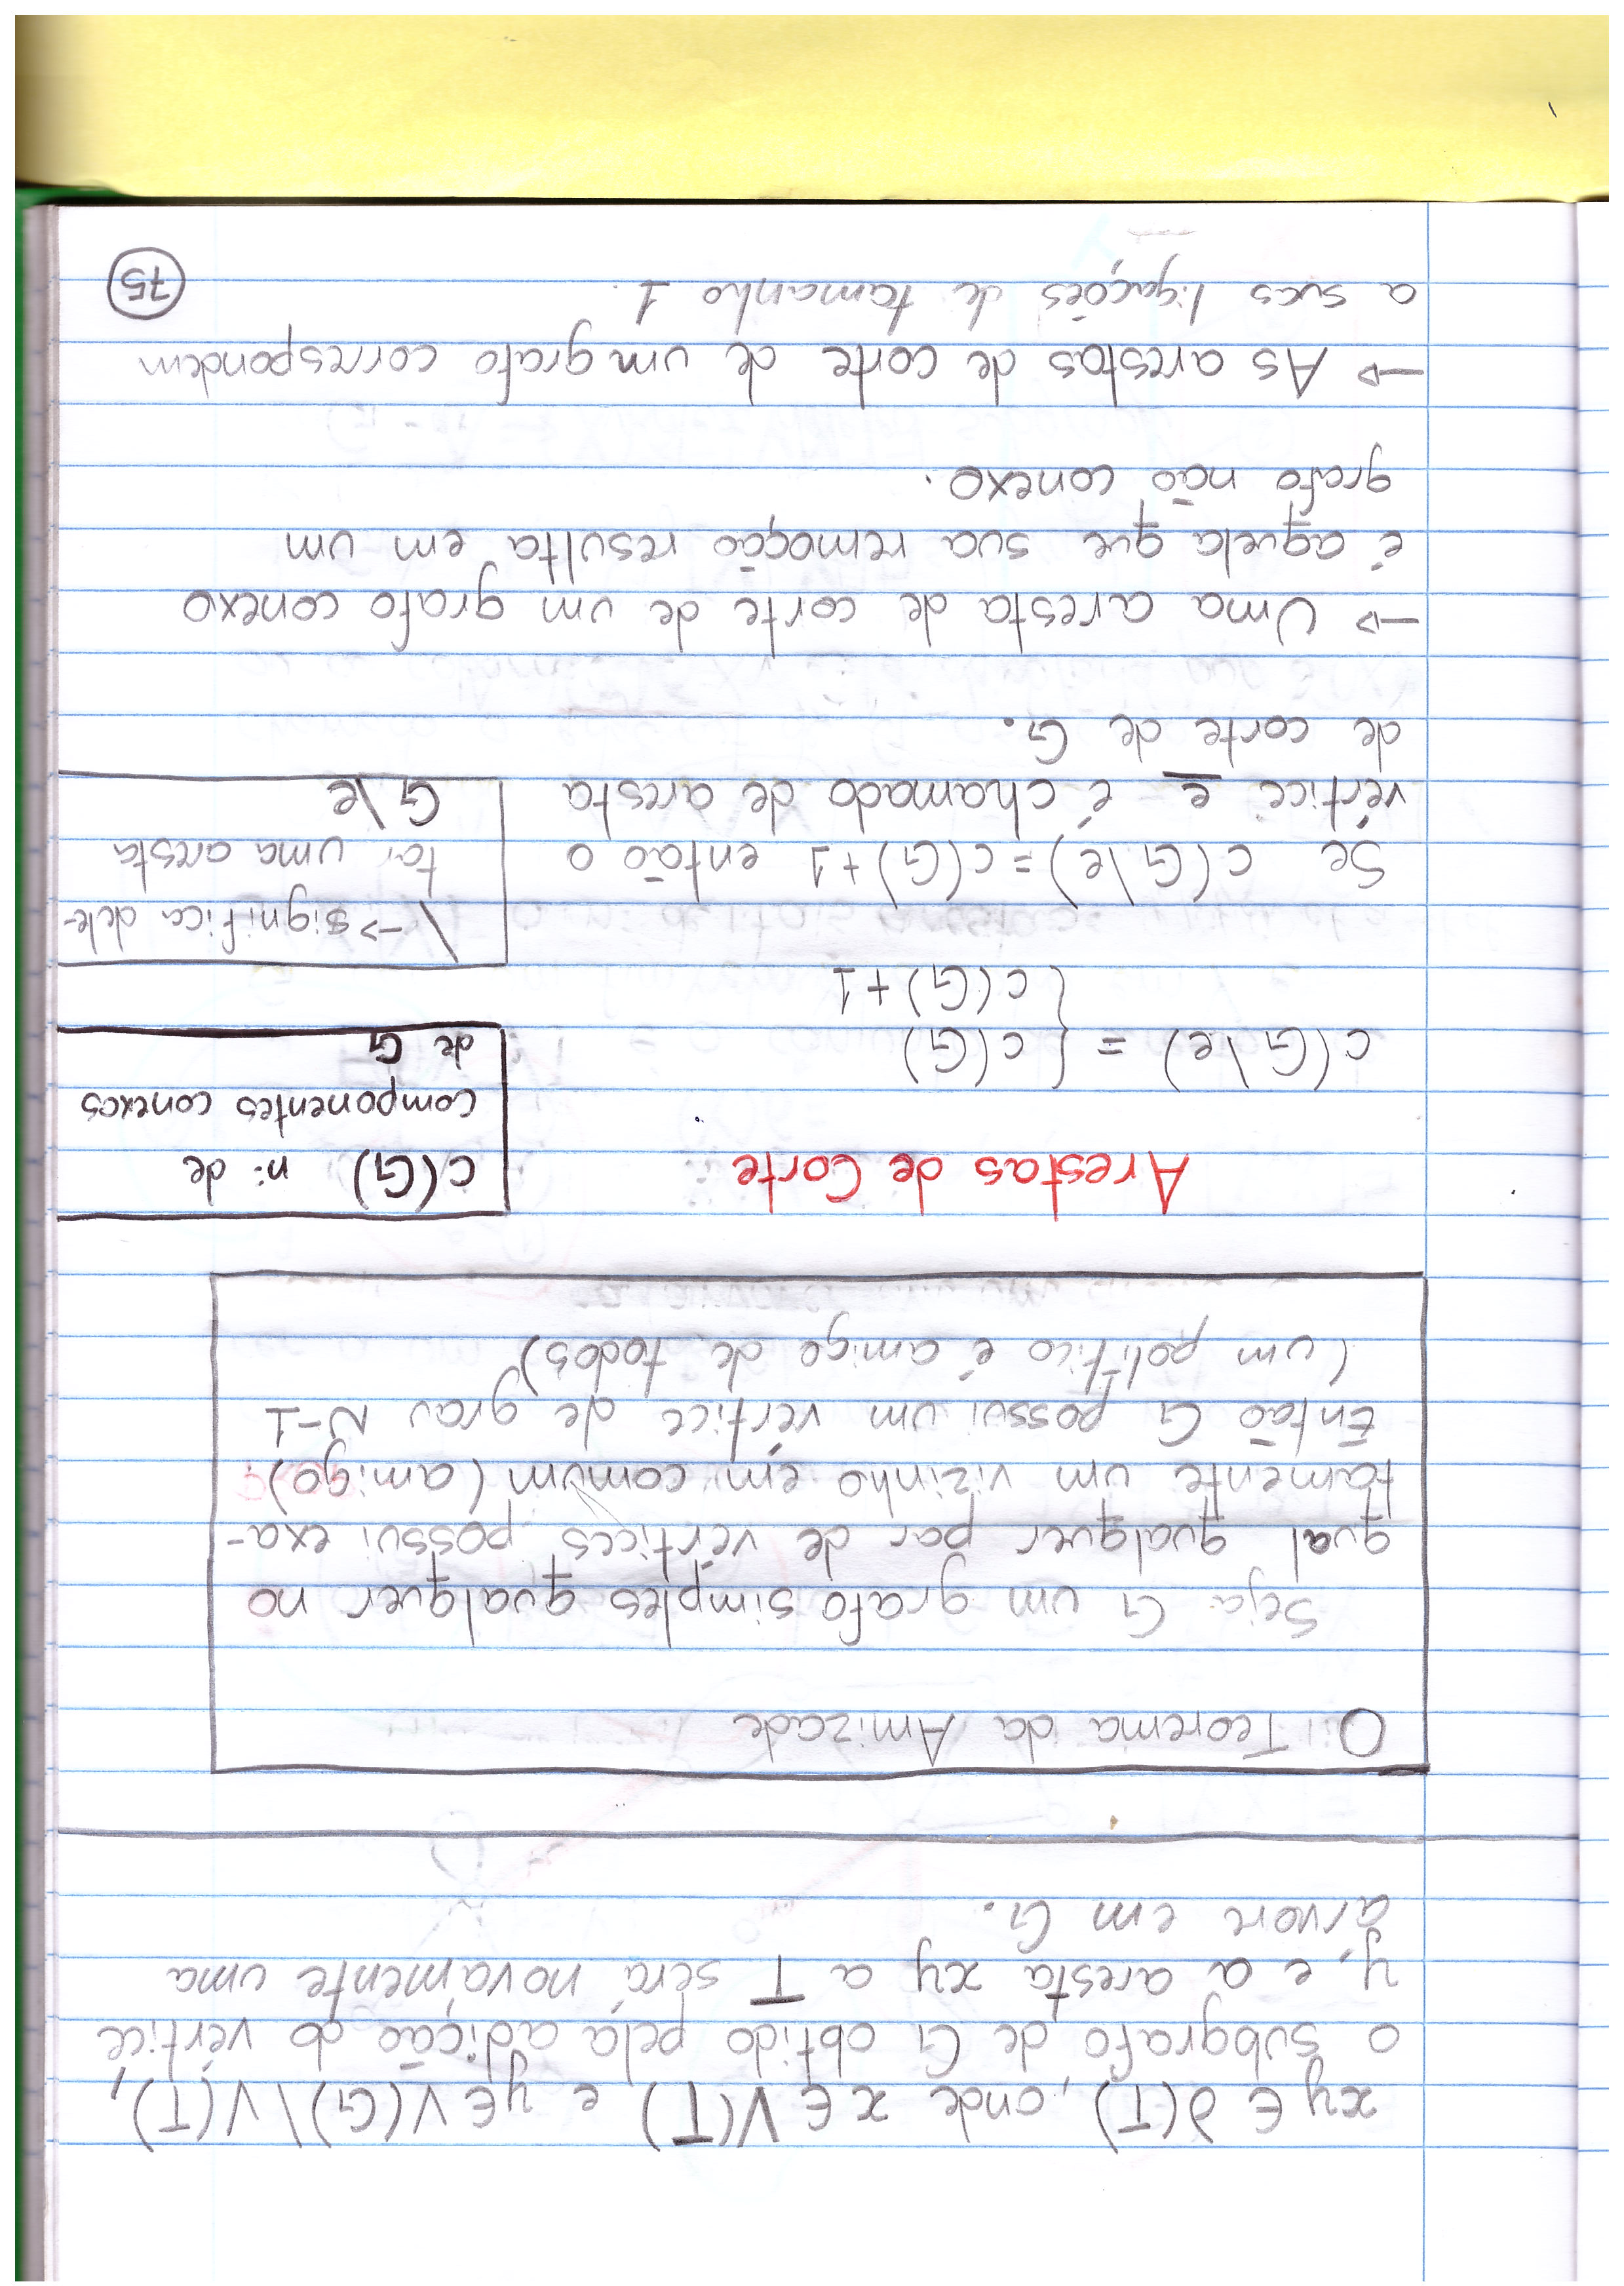 xy ∈ ∂(T), onde x ∈ V(T) e y ∈ V(G)\V(T),
o subgrafo de G obtido pela adição do vértice
y, e a aresta xy a T será novamente uma
árvore em G.
O Teorema da Amizade
Seja G um grafo simples qualquer no
qual qualquer par de vértices possui exa-
tamente um vizinho em comum (amigo)
Então G possui um vértice de grau N-1
(um político é amigo de todos)
Arestas de Corte
c(G) nº de
componentes conexos
de G
c(G\e) = { c(G)
c(G)+1
\ → significa dele-
tar uma aresta
G\e
Se c(G\e) = c(G)+1 então o
vértice e é chamado de aresta
de corte de G.
→ Uma aresta de corte de um grafo conexo
é aquela que sua remoção resulta em um
grafo não conexo.
→ As arestas de corte de um grafo correspondem
a suas ligações de tamanho 1.
75